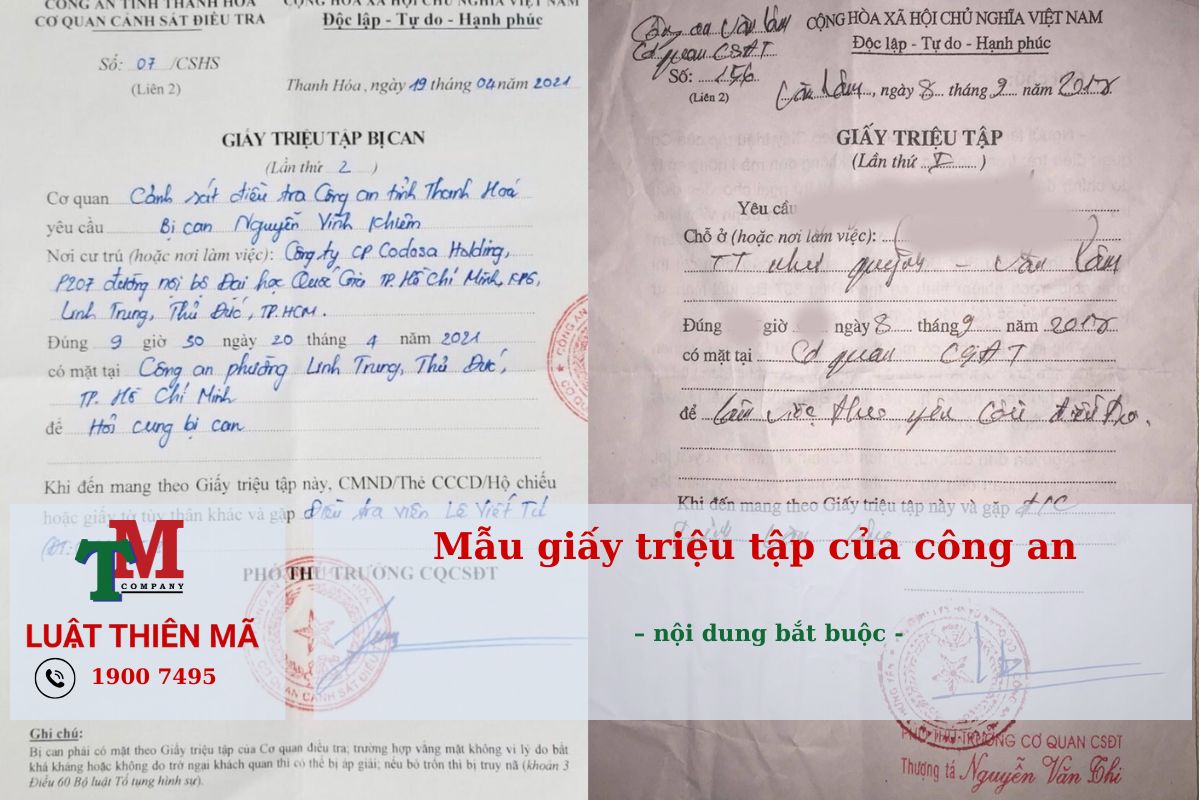 CÔNG AN TỈNH THANH HÓA
CƠ QUAN CẢNH SÁT ĐIỀU TRA
CỘNG HÒA XÃ HỘI CHỦ NGHĨA VIỆT NAM
Độc lập - Tự do - Hạnh phúc
Số: 07 /CSHS
(Liên 2)
Thanh Hóa, ngày 19 tháng 04 năm 2021
GIẤY TRIỆU TẬP BỊ CAN
(Lần thứ 2 )
Cơ quan Cảnh sát điều tra Công an tỉnh Thanh Hoá
yêu cầu Bị can Nguyễn Vĩnh Khiêm
Nơi cư trú (hoặc nơi làm việc): Công ty CP Codosa Holding,
P207 đường nội bộ Đại học Quốc Gia TP. Hồ Chí Minh, KP6,
Linh Trung, Thủ Đức, TP.HCM.
Đúng 9 giờ 30 ngày 20 tháng 4 năm 2021
có mặt tại Công an phường Linh Trung, Thủ Đức,
TP. Hồ Chí Minh
để Hỏi cung bị can
Khi đến mang theo Giấy triệu tập này, CMND/Thẻ CCCD/Hộ chiếu
hoặc giấy tờ tùy thân khác và gặp Điều tra viên Lê Viết Tú
PHÓ THỦ TRƯỞNG CQCSĐT
Ghi chú:
Bị can phải có mặt theo Giấy triệu tập của Cơ quan điều tra; trường hợp vắng mặt không vì lý do bất
khả kháng hoặc không do trở ngại khách quan thì có thể bị áp giải; nếu bỏ trốn thì bị truy nã (khoản 3
Điều 60 Bộ luật Tố tụng hình sự).
Công an Văn Lâm
Cơ quan CSĐT
Số: 156
(Liên 2)
CỘNG HÒA XÃ HỘI CHỦ NGHĨA VIỆT NAM
Độc lập - Tự do - Hạnh phúc
Văn Lâm, ngày 8 tháng 9 năm 2018
GIẤY TRIỆU TẬP
(Lần thứ I )
Yêu cầu
Chỗ ở (hoặc nơi làm việc):
TT như quỳnh - Văn Lâm
Đúng giờ ngày 8 tháng 9 năm 2018
có mặt tại Cơ quan CSĐT
để làm việc theo yêu cầu điều tra.
Khi đến mang theo Giấy triệu tập này và gặp đ/c
PHÓ THỦ TRƯỞNG CƠ QUAN CSĐT
Thượng tá Nguyễn Văn Thi
TM
COMPANY
LUẬT THIÊN MÃ
1900 7495
Mẫu giấy triệu tập của công an
– nội dung bắt buộc -